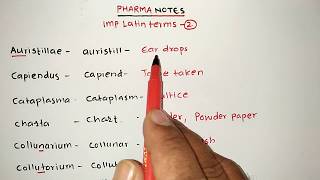 PHARMA NOTES
imp Latin terms - 2
Auristillae - auristill - Ear drops
Capiendus - Capiend - To be taken
Cataplasma - Cataplasm -
Charta - Chart - Powder paper
Collunarium - Collunar -
Collutorium -